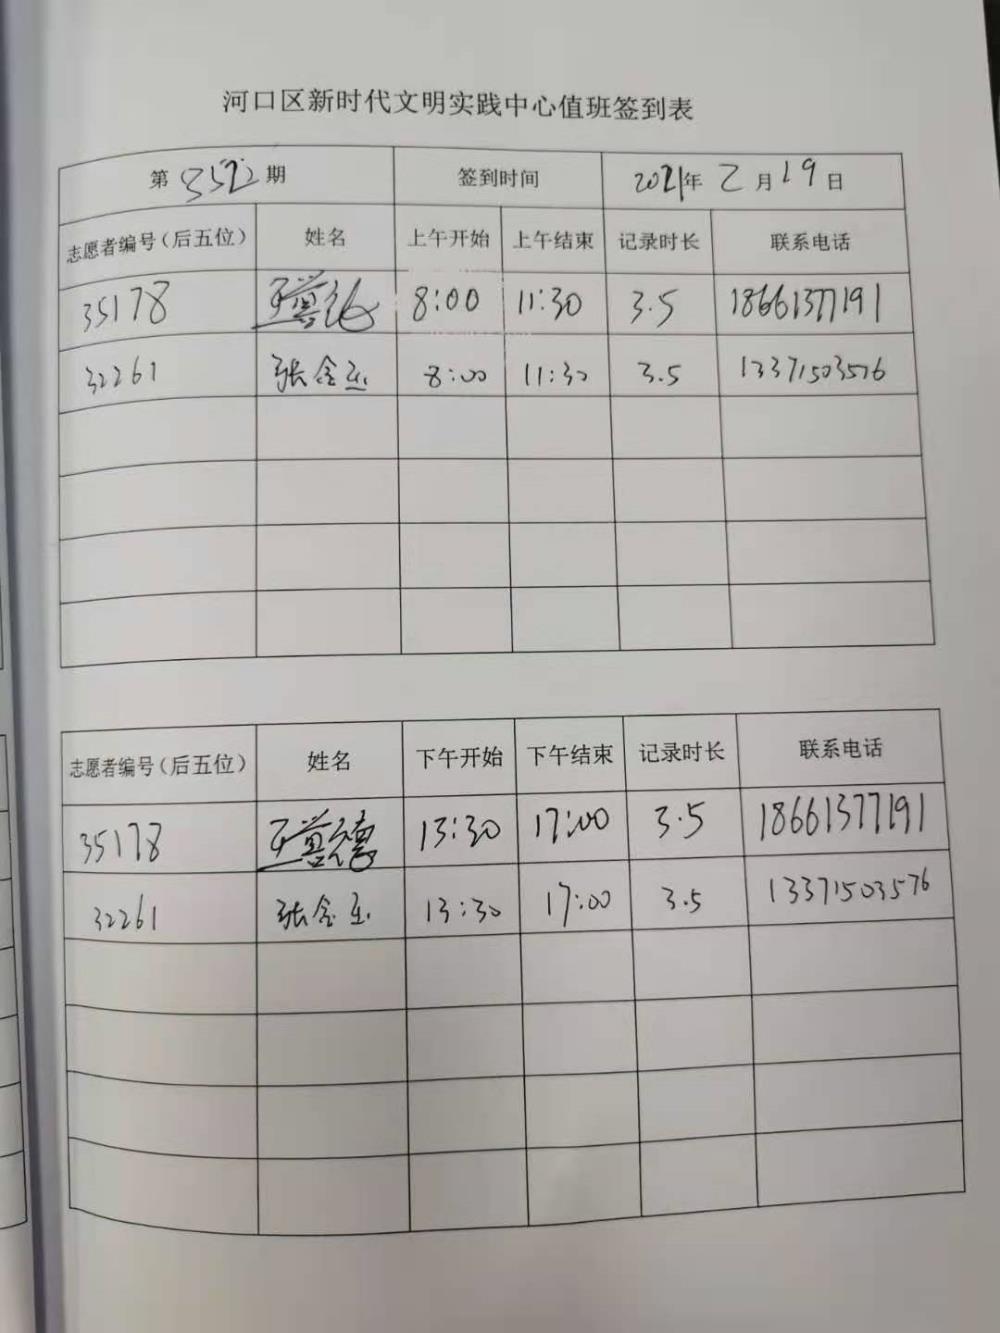 河口区新时代文明实践中心值班签到表
第 352 期 签到时间 2021年 2月19日
志愿者编号(后五位) 姓名 上午开始 上午结束 记录时长 联系电话
35178 8:00 11:30 3.5 18661377191
32261 张金玉 8:00 11:30 3.5 13371503576
志愿者编号(后五位) 姓名 下午开始 下午结束 记录时长 联系电话
35178 13:30 17:00 3.5 18661377191
32261 张金玉 13:30 17:00 3.5 13371503576